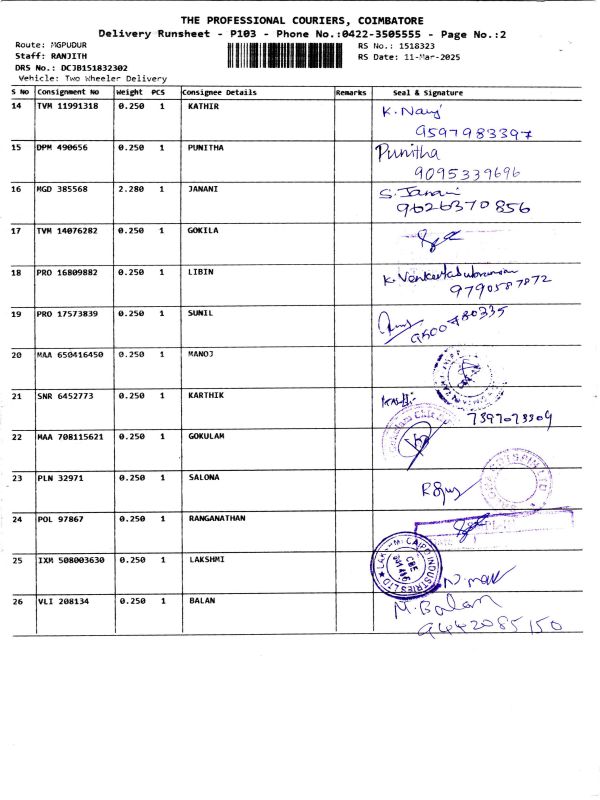 THE PROFESSIONAL COURIERS, COIMBATORE
Delivery Runsheet - P103 - Phone No.:0422-3505555 - Page No.:2
Route: MGPUDUR RS No.: 1518323
Staff: RANJITH RS Date: 11-Mar-2025
DRS No.: DCJB151832302
Vehicle: Two Wheeler Delivery
S No Consignment No Weight PCS Consignee Details Remarks Seal & Signature
14 TVM 11991318 0.250 1 KATHIR
9597983397
15 DPM 490656 0.250 1 PUNITHA Punitha
9095339696
16 MGD 385568 2.280 1 JANANI S. Janani
9626370856
17 TVM 14076282 0.250 1 GOKILA
18 PRO 16809882 0.250 1 LIBIN K. Venkatasubramanian
9790587872
19 PRO 17573839 0.250 1 SUNIL
9500780335
20 MAA 650416450 0.250 1 MANOJ
21 SNR 6452773 0.250 1 KARTHIK
7397073309
22 MAA 708115621 0.250 1 GOKULAM
23 PLN 32971 0.250 1 SALONA
24 POL 97867 0.250 1 RANGANATHAN
25 IXM 508003630 0.250 1 LAKSHMI
INDUSTRIES LTD
CBE
26 VLI 208134 0.250 1 BALAN M. Balan
9442085150